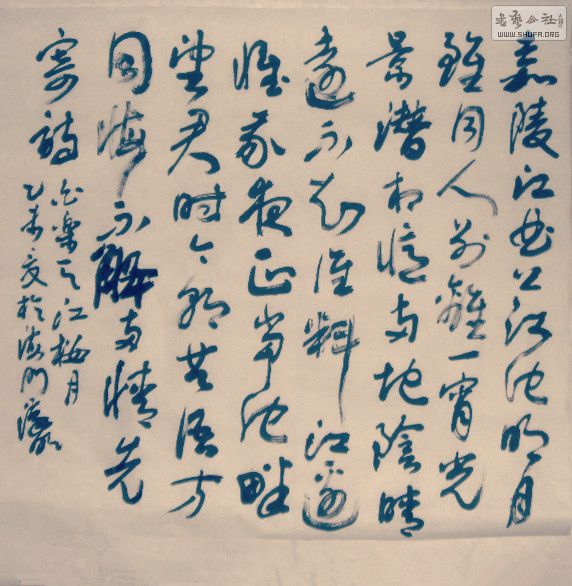 嘉陵江曲曲江池明月
雖同人别離一宵光
景潜相憶两地陰晴
遠不知谁料江邊
懷我夜正當池畔
望君时今朝共语方
同悔不解多情先
寄詩
白樂天江楼月
乙未夏於海門
书艺公社
WWW.SHUFA.ORG